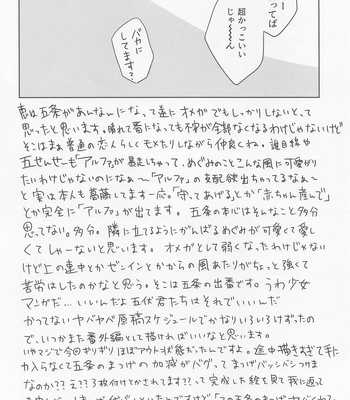 ー
ってば
超かっこいい
じゃ～～ん
バカに
してます?
恵は五条があんなんになって逆にオメガでもしっかりしないと、って
思ったと思います。晴れて番になっても不安が全部なくなるわけじゃないけど
そこはまぁ普通の恋人らしくモメたりしながら仲良くね。誰目線や
五せんせーも「アルファ」が暴走しちゃって、めぐみのことこんな風に可愛がり
たいわけじゃないのになぁ～「アルファ」の支配欲出ちゃってるなぁ～
と実は本人も葛藤してます一応。「守ってあげる」とか「赤ちゃん産んで」
とか完全に「アルファ」が出てます。五条の本心はそんなこと多分
思ってない。多分。隣に立てるようにがんばるめぐみが可愛くて愛し
くてしゃーないと思います。オメガとして弱くなったわけじゃない
けど上の連中とかゼンインとかからの風あたりがちょっと強くて
苦労はしたのかなと思う。そこは五条の出番です。うわ少女
マンガだ…いいんだよ五伏君たちはそれでいいんだ
かつてないヤバヤバ原稿スケジュールでかなりいろいろけずったの
で、いつかまた番外編として描ければいいなと思います。
いやマジで今回ギリギリほぼアウト状態だったんですよ。途中描きすぎて手に
力入らなくて五条のまつげの加減がバグってまつげバッシバシつまれ
なのか??え??3枚付けとかされてます??って完成した絵を見て我に返って